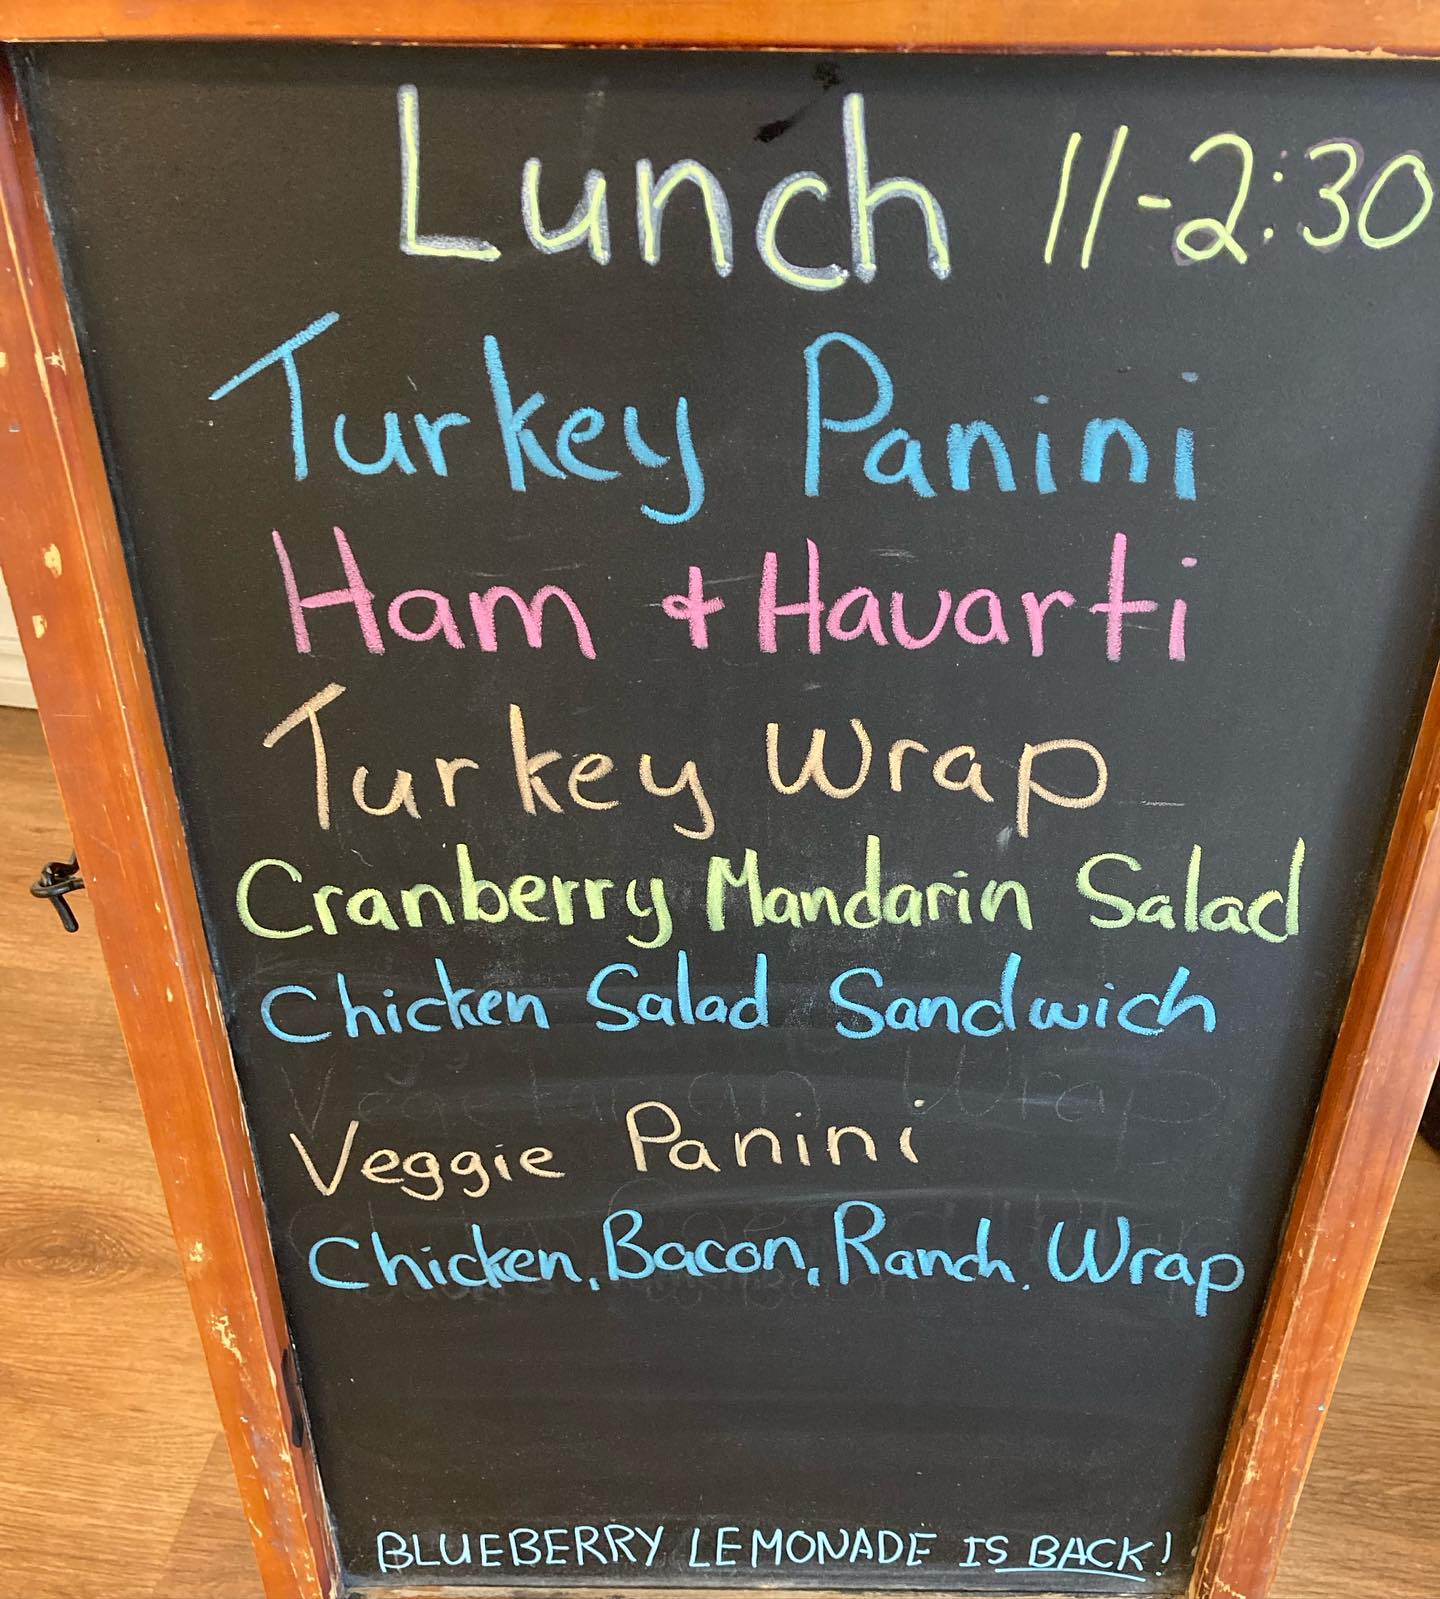 Lunch 11-2:30
Turkey Panini
Ham & Havarti
Turkey Wrap
Cranberry Mandarin Salad
Chicken Salad Sandwich
Vegetarian Wrap
Veggie Panini
Chicken, Bacon, Ranch. Wrap
BLUEBERRY LEMONADE IS BACK!